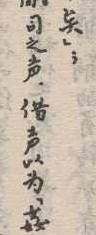 矣」；
司之声，借声以为「姦